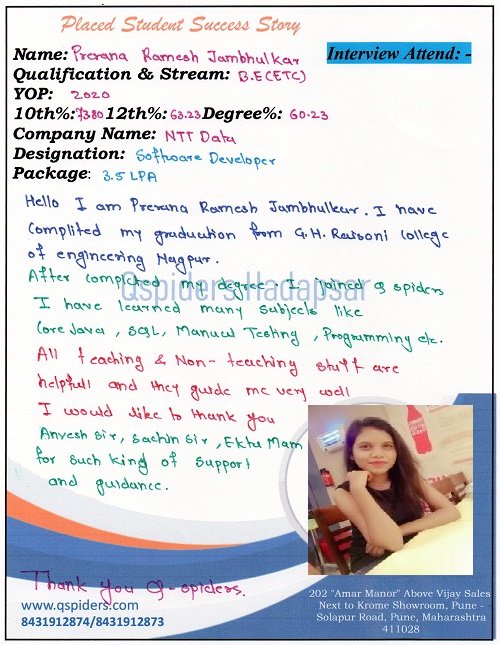 Placed Student Success Story
Name: Prerana Ramesh Jambhulkar
Interview Attend: -
Qualification & Stream: B.E(ETC)
YOP: 2020
10th%: 73.80 12th%: 63.23 Degree%: 60.23
Company Name: NTT Data
Designation: Software Developer
Package: 3.5 LPA
Hello I am Prerana Ramesh Jambhulkar. I have
complited my graduation from G.H. Raisoni college
of engineering Nagpur.
After completed my degree. I joined Q spiders
Qspiders Hadapsar
I have learned many subjects like
Core Java, SQL, Manual Testing, Programming etc.
All teaching & Non-teaching stuff are
helpfull and they guide me very well
I would like to thank you
Anvesh sir, Sachin sir, Ekta Mam
for such king of support
and guidance.
Thank you Q-spiders.
www.qspiders.com
8431912874/8431912873
202 "Amar Manor" Above Vijay Sales
Next to Krome Showroom, Pune -
Solapur Road, Pune, Maharashtra
411028